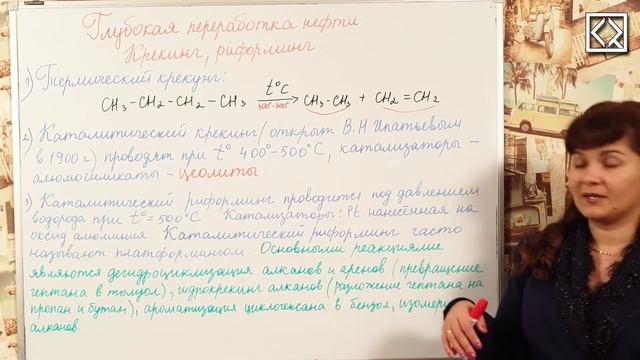 Глубокая переработка нефти.
Крекинг, риформинг
1) Термический крекинг:
t°C
CH₃-CH₂-CH₂-CH₃ → CH₃-CH₃ + CH₂=CH₂
400°-700°
2) Каталитический крекинг (открыт В.Н.Ипатьевым
в 1900г) проводят при t° 400°-500°C, катализаторы –
алюмосиликаты – цеолиты.
3) Каталитический риформинг проводится под давлением
водорода при t°=500°C. Катализаторы: Pt нанесённая на
оксид алюминия. Каталитический риформинг часто
называют платформингом. Основными реакциями
являются дегидроциклизация алканов и аренов (превращение
гептана в толуол), гидрокрекинг алканов (разложение гептана на
пропан и бутан), ароматизация циклогексана в бензол, изомер
алканов.